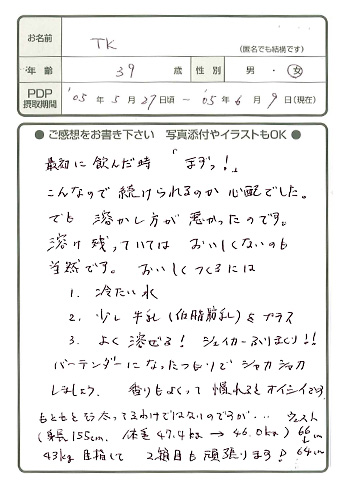 お名前 TK
(匿名でも結構です)
年 齢 39 歳 性 別 男 ・ 女
PDP
摂取期間 '05 年 5 月 27 日頃 ~ '05 年 6 月 9 日(現在)
● ご感想をお書き下さい 写真添付やイラストもOK ●
最初に飲んだ時「まずっ!」
こんなので続けられるのか心配でした。
でも溶かし方が悪かったのです。
溶け残っていては おいしくないのも
当然です。 おいしくつくるには
1. 冷たい水
2. 少し牛乳(低脂肪乳)をプラス
3. よく溶ぜる! シェイカーふりまくり!!
バーテンダーになったつもりでシャカシャカ
しましょう。 香りもよくって 慣れるとオイシイです。
もともとそう太ってるわけではないのですが・・ ウェスト
(身長155cm. 体重47.4kg → 46.0kg) 66
43kg目指して 2箱目も頑張ります! 64cm